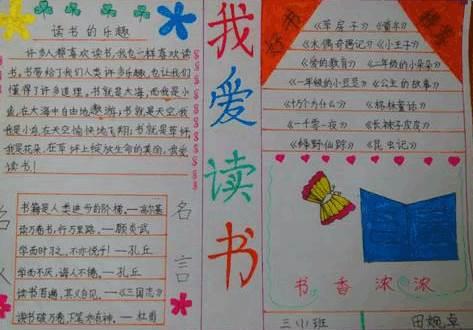 读书的乐趣
许多人都喜欢读书,我也一样喜欢读
书,书带给了我们人类许多乐趣,也让我们
懂得了许多道理,书就是大海,而我是小
鱼,在大海中自由地遨游;书就是天空,我
我是小鸟,在天空愉快地飞翔;书就是草坪,
我是花朵,在草坪上绽放生命的美丽,我爱
读书!
名人
名言
书籍是人类进步的阶梯。—高尔基
读万卷书,行万里路。—顾炎武
学而时习之,不亦悦乎!—孔丘
学而不厌,诲人不倦。—孔丘
读书百遍,其义自见。—《三国志》
读书破万卷,下笔如有神。—杜甫
我爱读书
好书
推荐
《草房子》《童年》
《木偶奇遇记》《小王子》
《爱的教育》《二年级的小朵朵》
《一年级的小豆豆》《公主的故事》
《十万个为什么》《格林童话》
《一千零一夜》《长袜子皮皮》
《绿野仙踪》《昆虫记》
书香浓浓
三(1)班
田婉卓